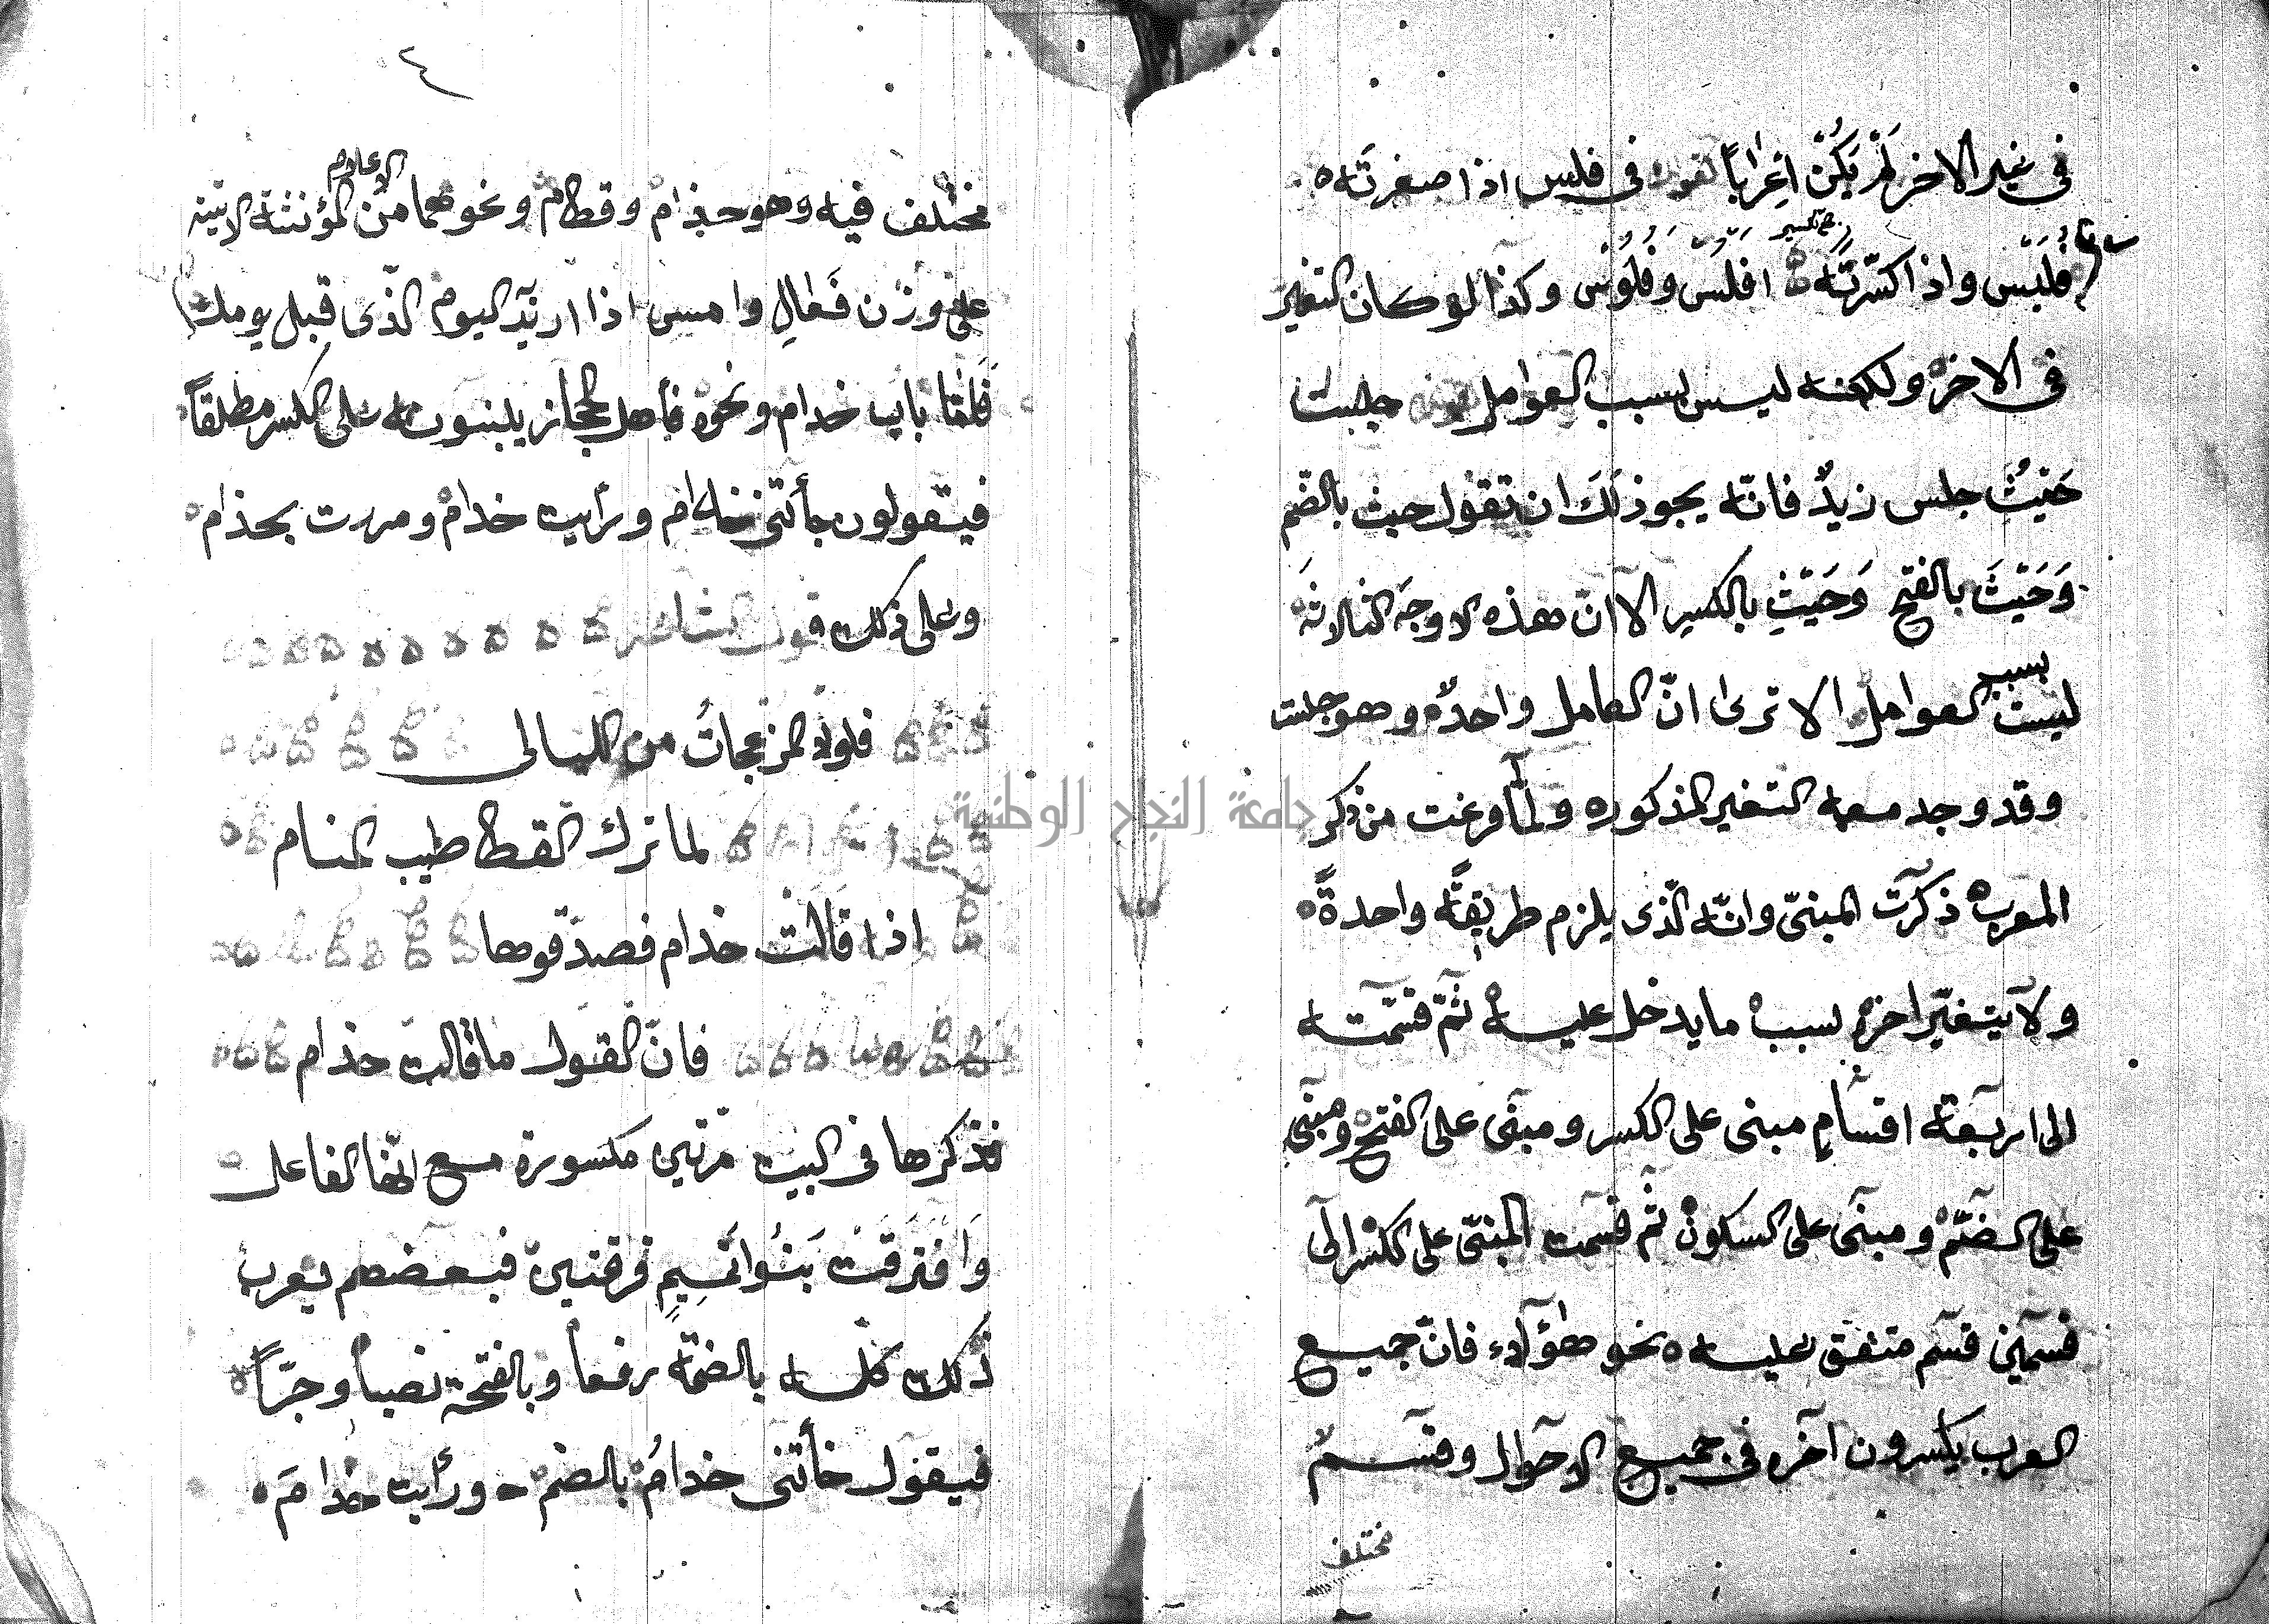 في غير الاخر لَمْ يَكُنْ اِعْرَاباً كقولك في فلس اذا صغرتَه
فُلَيْس واذا كسّرتَه جمع تكسير افلُس وفُلُوْس وكذا لو كان التغير
في الاخر ولكنه ليس بسبب العوامل نحو جلست
حَيْثُ جلس زيدٌ فانّه يجوز لَكَ ان تقول حيث بالضّم
وَحَيْثَ بالفتح وَحَيْثِ بالكسر الا انّ هذه الاوجه الثلاثة
ليست بسبب العوامل الا ترى انّ العامل واحدٌ وهو جلست
وقد وجد معه التغير المذكوره ولمّا فرغت من ذكر
المعرب ذكرت المبنيّ وانّه الّذي يلزم طريقةً واحدةً
ولا يتغيّر اخره بسبب ما يدخل عليه ثمّ قسّمته
الى اربعة اقسامٍ مبنى على الكسر ومبنى على الفتح ومبنى
على الضّمّ ومبنى على السكون ثم قسمت المبنيّ على الكسر الى
قسمين قسم متفق عليه نحو هؤلاء فانّ جميع
العرب يكسرون آخره في جميع الاحوال وقسمٌ
مختلف
٤
مختلف فيه وهو حذام وقطام ونحوهما من الاعلام المؤنثة الاتية
على وزن فَعَالِ وامس اذا اريد اليوم الّذي قبل يومك
فَامّا باب خدام ونحوه فأهل الحجاز يبنونه على الكسر مطلقاً
فيقولون جأتنى خدام ورايت خدام ومررت بحذام
وعلى ذلك قول الشاعر
فلولا المزعجاتُ من الليالى
لما ترك القطا طيب المنام
اذا قَالَت خدام فصدّقوها
فانّ القول ما قالت حذام
فذكرها في البيت مرّتين مكسورة مع انّها الفاعل
وَافْتَرَقَتْ بَنُوا تَمِيمٍ فرقتين فبعضهم يعرب
ذلك كلّه بالضمّة رفعاً وبالفتحة نصباً وجرّاً
فيقول جأتنى خدامُ بالضم ورأيت خدامَ
جامعة النجاح الوطنية